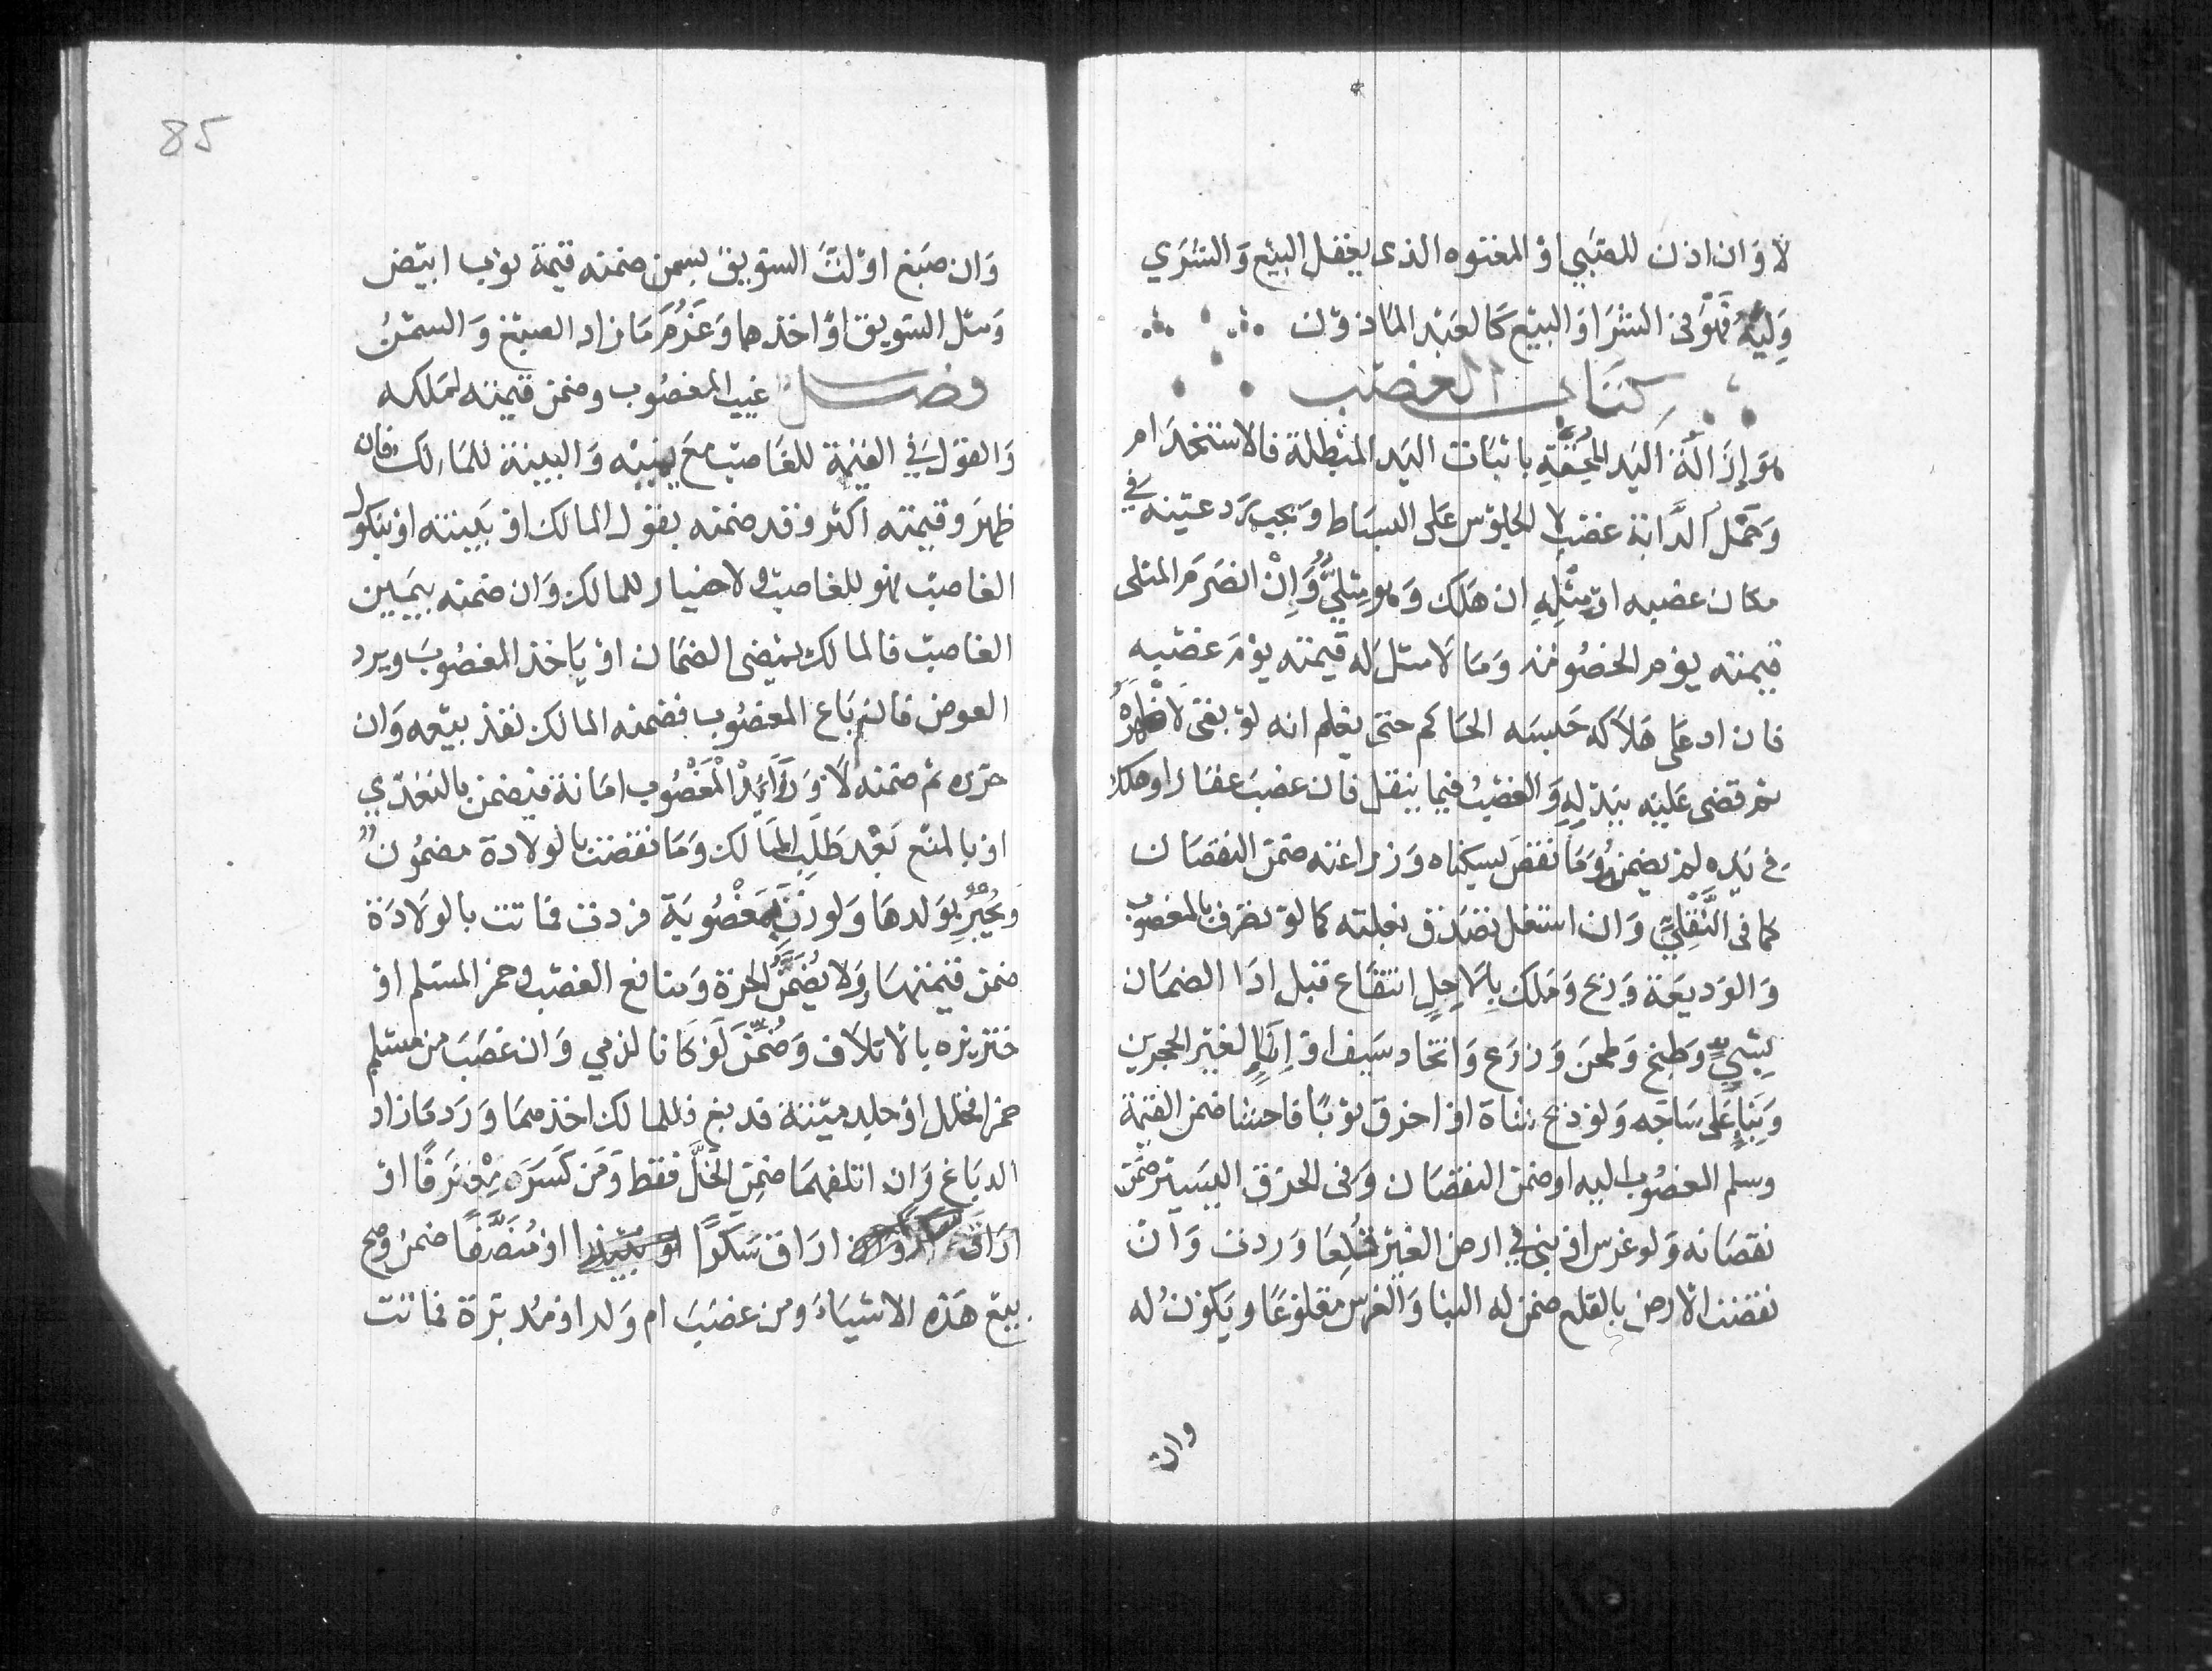 لا وان اذن للصبي او المعتوه الذى يعقل البيع والشري
وليه فهو فى الشرا والبيع كالعبد الماذون
كتاب الغصب
هو ازالة اليد المحقة باثبات اليد المبطلة فالاستخدام
وحمل الدابة غصب لا الجلوس على البساط ويجب رد عينه في
مكان غصبه او مثله ان هلك وهو مثلي وان انصرم المثلى
قيمته يوم الخصومة وما لا مثل له قيمته يوم غصبه
فان ادعى هلاكه حبسه الحاكم حتى يعلم انه لو بقى لاظهره
ثم قضى عليه ببدله والغصب فيما ينقل فان غصب عقارا وهلك
في يده لم يضمن وما نقص بسكناه وزراعته ضمن النقصان
كما فى النقلي وان استغل تصدق بغلته كما لو تصرف بالمغصوب
والوديعة وربح وملك بلا حل انتفاع قبل ادا الضمان
بشيٍ وطبخ وطحن وزرع واتخاد سيف او انا لغير الحجرين
وبناء على ساجه ولو ذبح شاة او اخرق ثوبا فاحشا ضمن القيمة
وسلم المغصوب اليه او ضمن النقصان وفى الخرق اليسير ضمن
نقصانه ولو غرس او بنى في ارض الغير قلعا وردت وان
نقصت الارض بالقلع ضمن له البنا والغرس مقلوعا ويكون له
وان
85
وان صبغ او لت السويق بسمن ضمنه قيمة ثوب ابيض
ومثل السويق او اخذهما وغرم ما زاد الصبغ والسمن
فصل غيب المغصوب وضمن قيمته لملكه
والقول في القيمة للغاصب مع يمينه والبينة للمالك فان
ظهر وقيمته اكثر وقد ضمنه بقول المالك او ببينته او بنكول
الغاصب فهو للغاصب ولا خيار للمالك وان ضمنه بيمين
الغاصب فالمالك يمضى الضمان او ياخذ المغصوب ويرد
العوض فان باع المغصوب فضمنه المالك نفذ بيعه وان
حرره ثم ضمنه لا وزوائد المغصوب امانة فيضمن بالتعدي
او بالمنع بعد طلب المالك وما نقصت بالولادة مضمون
ويجبر بولدها ولو زنى بمغصوبة فردت فماتت بالولادة
ضمن قيمتها ولا يضمن الحرة ومنافع الغصب وخمر المسلم او
خنزيره بالاتلاف وضمن لو كانا لذمي وان غصب من مسلم
خمرا فخلل او جلد ميتة فدبغ فللمالك اخذهما ورد ما زاد
الدباغ وان اتلفهما ضمن الخل فقط ومن كسر معزفا او
اراق سكرا او منصفا ضمن وصح
بيع هذه الاشياء ومن غصب ام ولد او مدبرة فماتت